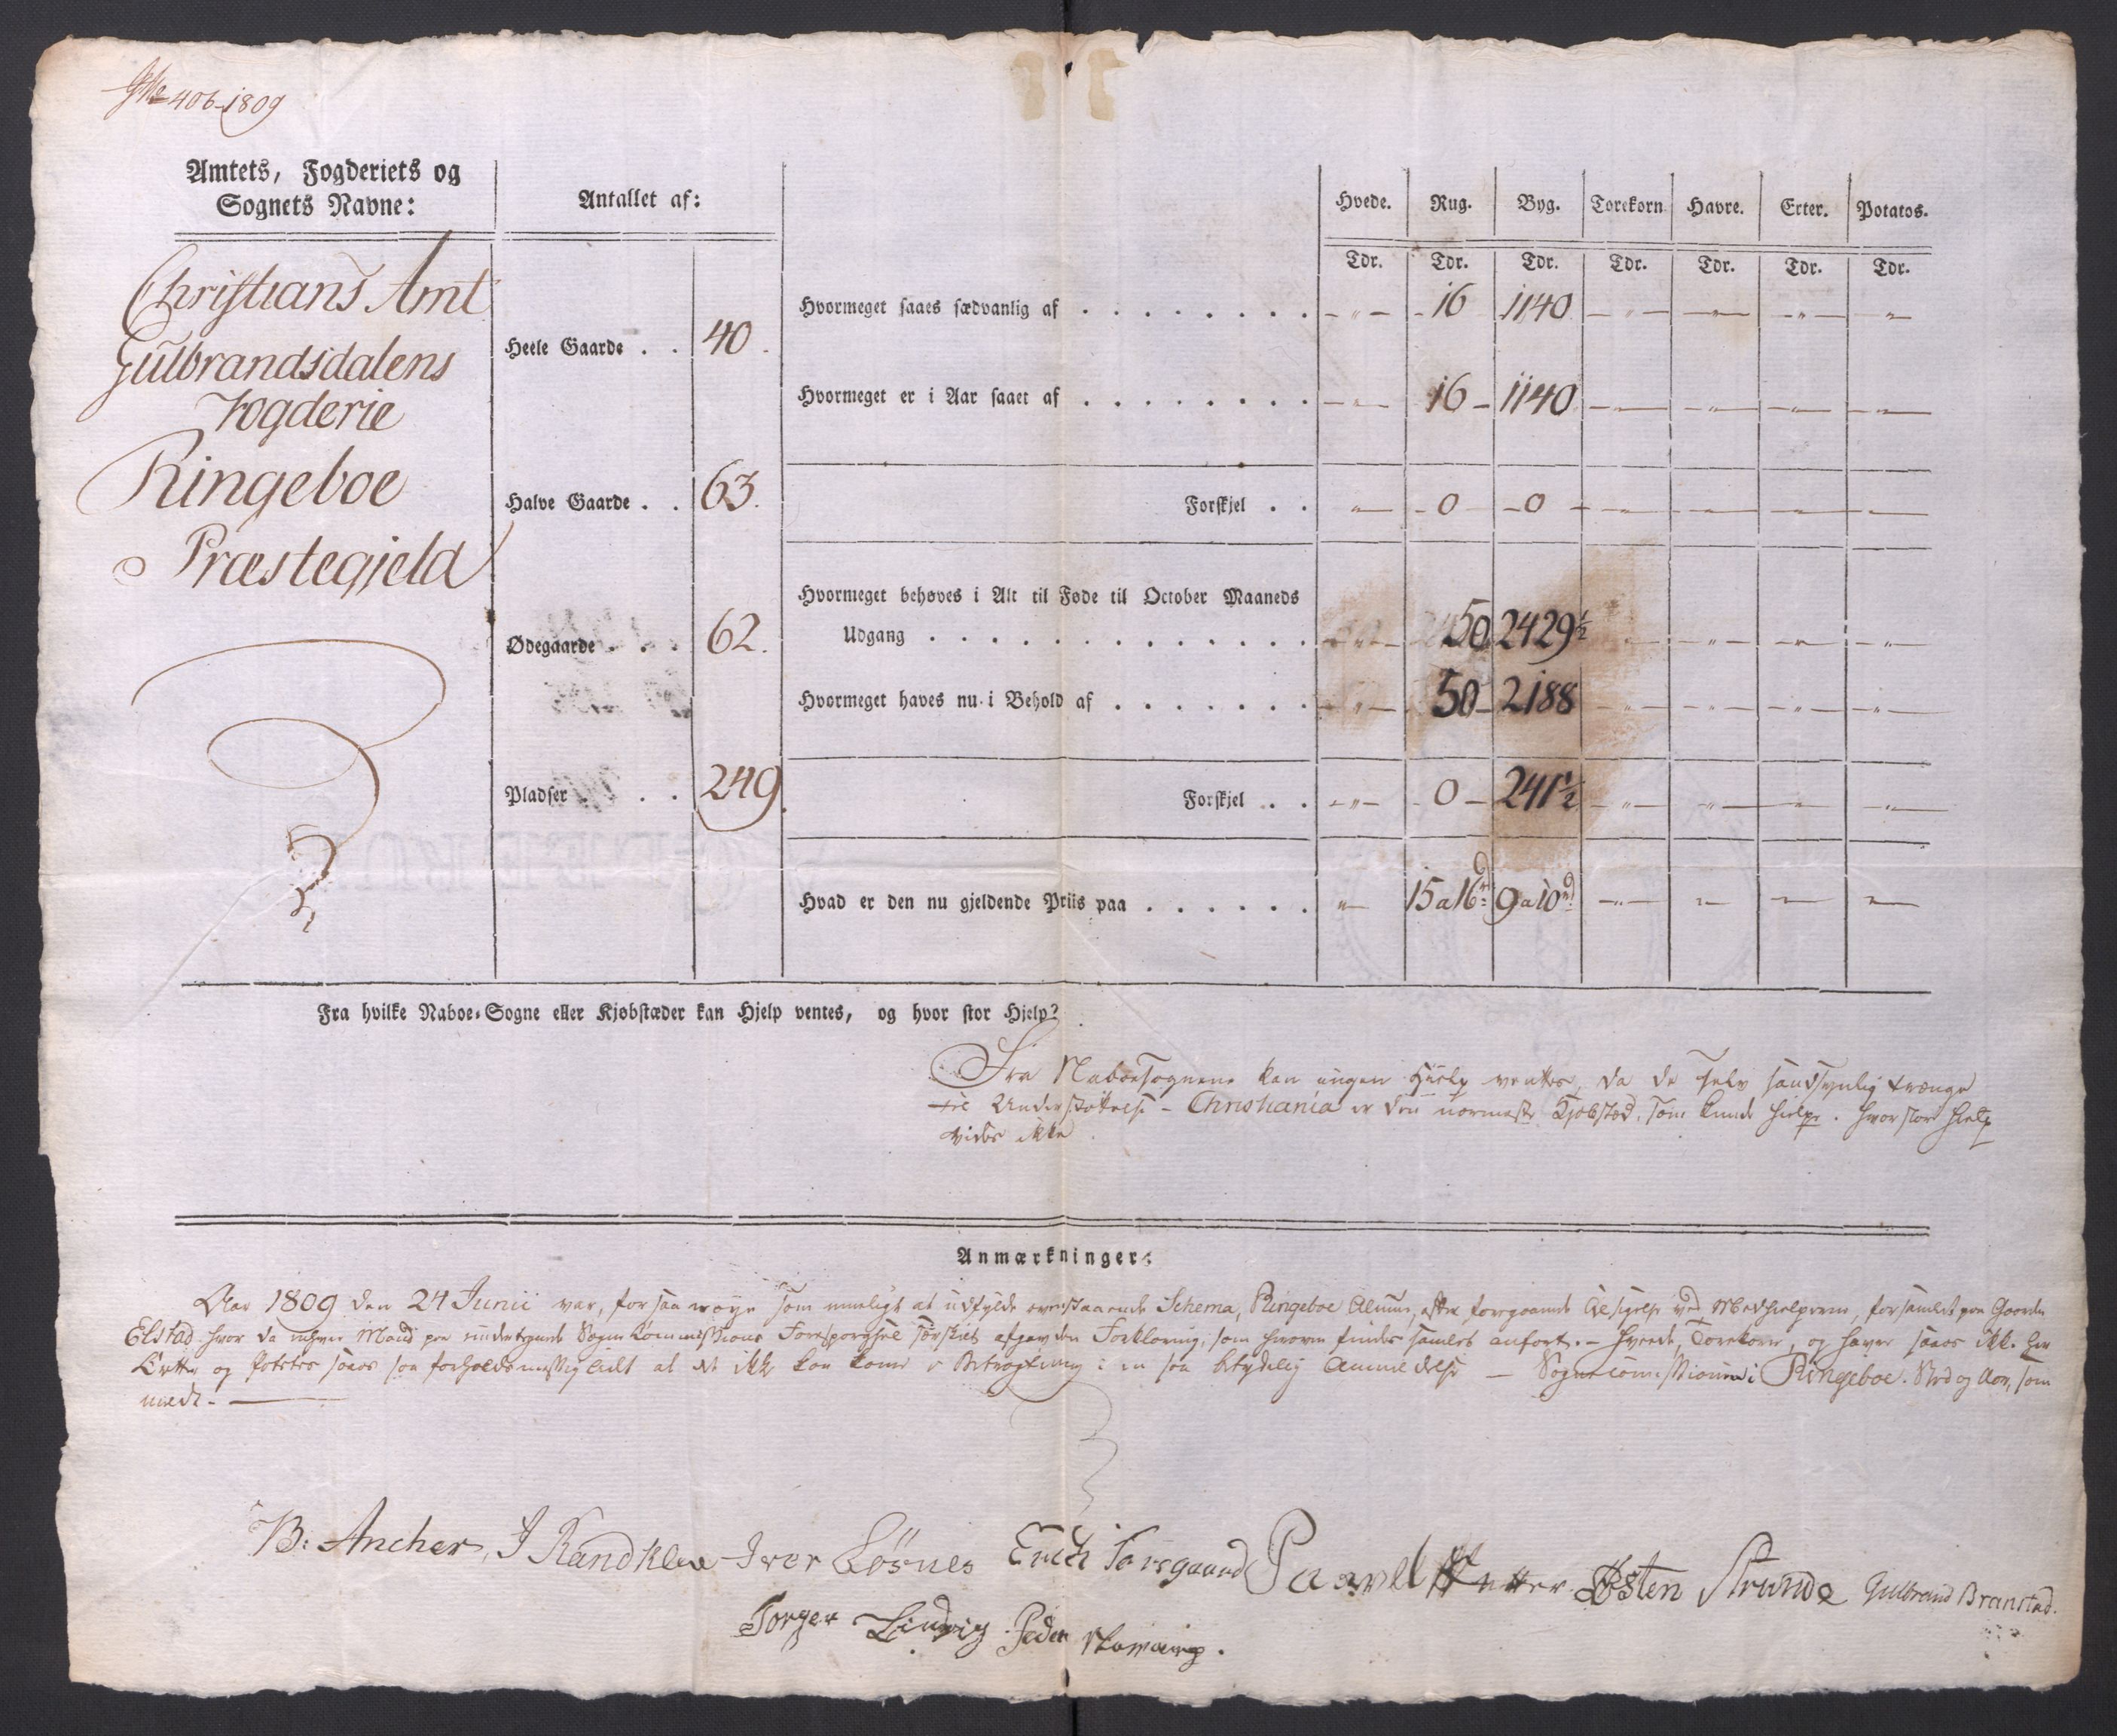 406-1809
Amtets, Fogderiets og
Sognets Navne:
Antallet af:
Hvede. Rug. Byg. Torekorn Havre. Erter. Potatos.
Tdr. Tdr. Tdr. Tdr. Tdr. Tdr. Tdr.
Christians Amt
Gulbrandsdalens
Fogderie
Ringeboe
Præstegjeld
Heele Gaarde . . 40.
Halve Gaarde . . 63.
Ødegaarde . . . 62.
Pladser . . . 249.
Hvormeget saaes sædvanlig af . . . . . . . . — " — 16 1140 — " — — " — — " — "
Hvormeget er i Aar saaet af . . . . . . . . — " — 16 — 1140 — " — — " — — " — — " —
Forskjel . . " — 0 — 0 — " — — " — — " — — " —
Hvormeget behøves i Alt til Føde til October Maaneds
Udgang . . . . . . . . . . . . . " — 50 2429½ " — " — — " — — " —
Hvormeget haves nu i Behold af . . . . . . . — " — 50 — 2188 — " — — " — — " — — " —
Forskjel . . — " — 0 — 241½ — " — — " — — " — — " —
Hvad er den nu gjeldende Priis paa . . . . . . " — 15 a 16 rd 9 a 10 rd — " — " — " — " —
Fra hvilke Naboe-Sogne eller Kjøbstæder kan Hjelp ventes, og hvor stor Hjelp?
Fra Naboesognene kan ingen Hielp ventes, da de selv sandsynlig trænge
til Understøttelse – Christiania er den nærmeste Kjøbstæd, som kunde hielpe. Hvor stor Hielp
vides ikke.
Anmærkninger:
Aar 1809 den 24 Junii var, for saa nøye som mueligt at udfylde ovenstaaende Schema, Ringeboe Almue, efter foregaaende Tilsigelse ved Medhielperne, forsamlet paa Gaarden
Elstad hvor da enhver Mand paa undertegnede Sogne Commissions Forespørgsel særskilt afgav den Forklaring, som hvoraf findes samlet anført. – Hveede, Torekorn, og Havre saaes ikke her
Erter og Potetes saaes saa forholdsmæssig lidt at det ikke kan komme i Betragtning i en saa betydelig Anmeldelse — Sognecommissionen i Ringeboe. Sted og Aar, som
meldt. —
B: Ancher, J Randklev Iver Løsnes Erich Forsgaard Paavel Østen Strande Gulbrand Branstad.
Torger Lindvig Peder